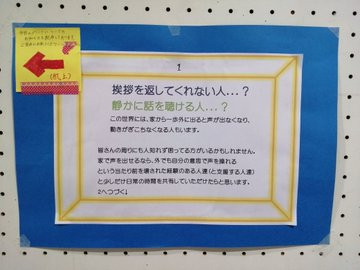 1
挨拶を返してくれない人...?
静かに話を聴ける人...?
この世界には、家から一歩外に出ると声が出なくなり、
動きがぎこちなくなる人もいます。
皆さんの周りにも人知れず困ってる方がいるかもしれません。
家で声を出せるなら、外でも自分の意志で声を操れる
という当たり前を壊された経験のある人達(と支援する人達)
と少しだけ日常の時間を共有していただけたらと思います。
2へつづく↓